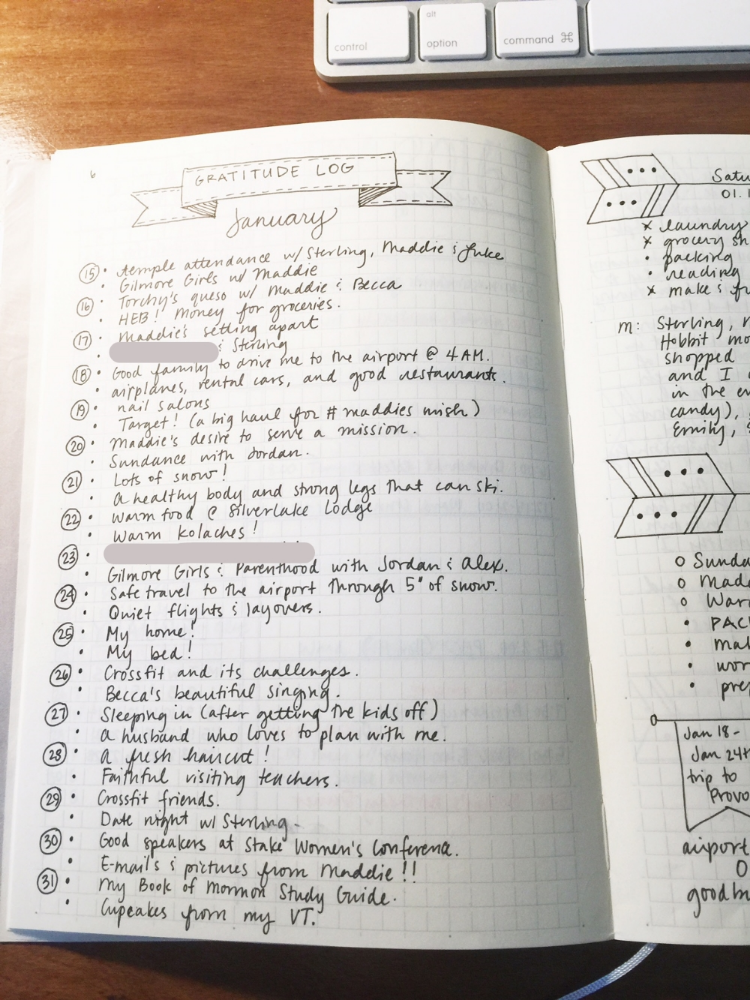 control
alt
option
command ⌘
6
GRATITUDE LOG
January
15 • temple attendance w/ Sterling, Maddie & Luke
• Gilmore Girls w/ Maddie
16 • Torchy's queso w/ Maddie & Becca
• HEB! Money for groceries.
17 • Maddie's setting apart
• & Sterling
18 • Good family to drive me to the airport @ 4 AM.
• airplanes, rental cars, and good restaurants.
19 • nail salons
• Target! (a big haul for #maddies mish)
20 • Maddie's desire to serve a mission.
• Sundance with Jordan.
21 • Lots of snow!
• a healthy body and strong legs that can ski.
22 • Warm food @ Silverlake Lodge
• Warm kolaches!
23 •
• Gilmore Girls & Parenthood with Jordan & Alex.
24 • Safe travel to the airport through 5" of snow.
• Quiet flights & layovers.
25 • My home!
• My bed!
26 • Crossfit and its challenges.
• Becca's beautiful singing.
27 • Sleeping in (after getting the kids off)
• a husband who loves to plan with me.
28 • A fresh haircut!
• Faithful visiting teachers.
29 • Crossfit friends.
• Date night w/ Sterling-
30 • Good speakers at Stake Women's Conference.
• E-mails & pictures from Maddie!!
31 • My Book of Mormon Study Guide.
• Cupcakes from my VT.
Satu
01.
x laundry
x grocery sh
• packing
• reading
x make & fr
m: Sterling,
Hobbit mo
shopped
and I
in the ev
candy),
Emily, &
o Sunda
o Made
o War
• PAC
• mai
• wor
• pre
Jan 18-
Jan 24th
trip to
Provo
airport
goodb